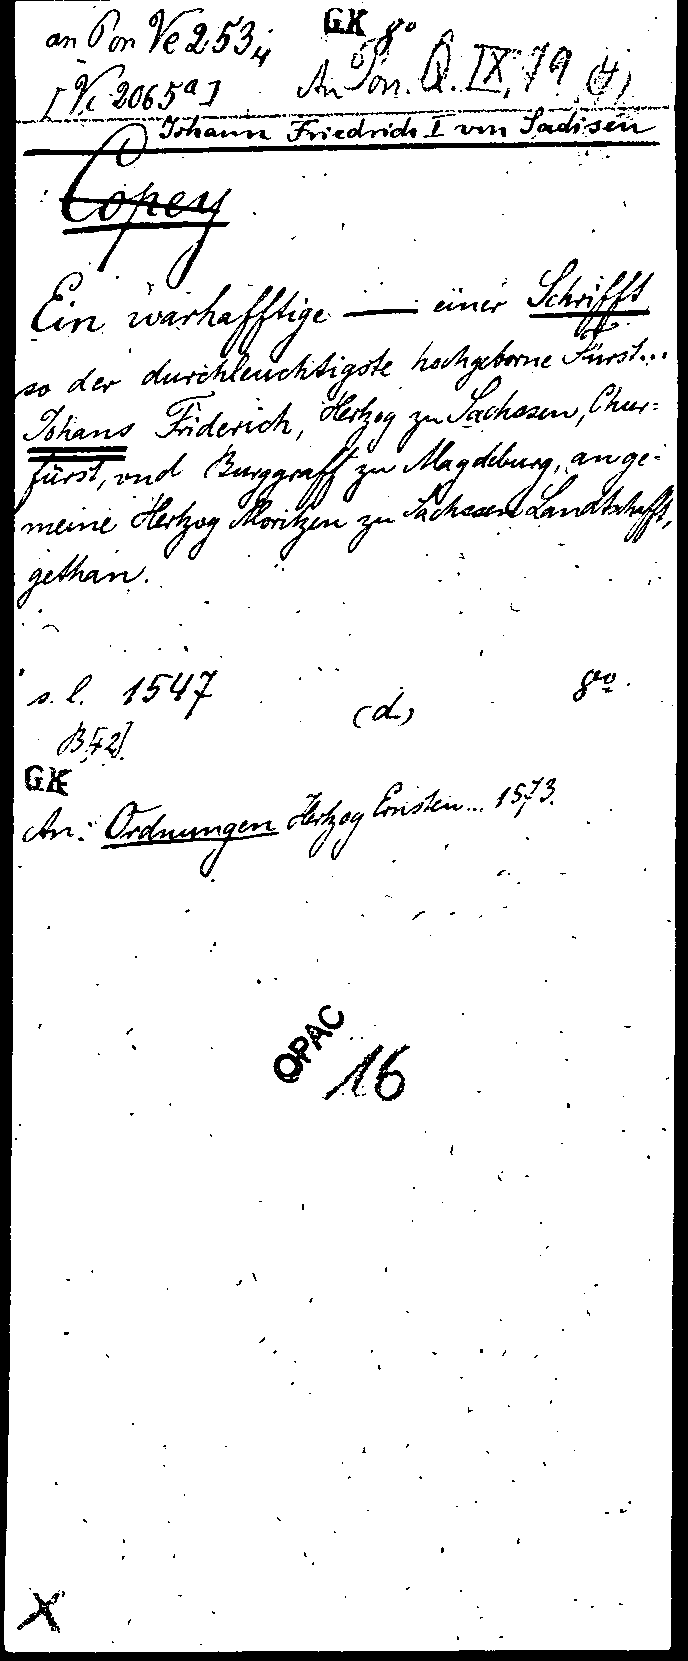 an Pon Ve 253,4 GK 8o
[Vc 2065a] An Pon. Q. IX, 79 (4)
Johann Friedrich I von Sachsen
Copey
Ein warhafftige — einer Schrifft
so der durchleuchtigste hochgeborne Fürst...
Johans Friderich, Hertzog zu Sachssen, Chur=
fürst, vnd Burggraff zu Magdeburg, an ge=
meine Hertzog Moritzen zu Sachssen Landtschafft,
gethan.
s. l. 1547 (d) 8vo.
GK
An: Ordnungen Hertzog Ernsten... 1573.
OPAC 16
X